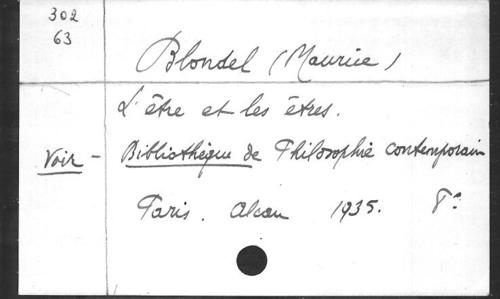 302
63
Blondel (Maurice)
L'être et les êtres.
Voir - Bibliothèque de Philosophie contemporain
Paris. Alcan 1935. 8°